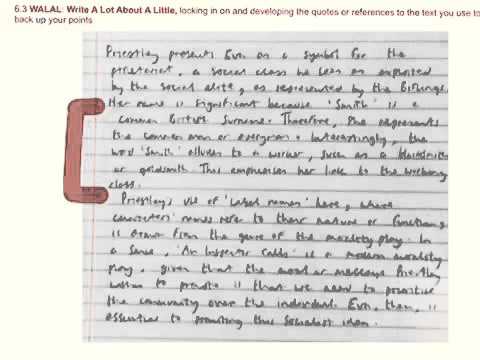 6.3 WALAL: Write A Lot About A Little, locking in on and developing the quotes or references to the text you use to
back up your points
Priestley presents Eva as a symbol for the
proletariat, a social class he sees as exploited
by the social elite, as represented by the Birlings.
Her name is significant because 'Smith' is a
common British surname. Therefore, she represents
the common man or everyman. Interestingly, the
word 'Smith' alludes to a worker, such as a blacksmith
or goldsmith. This emphasises her link to the working
class.
Priestley's use of 'label names' here, where
characters' names refer to their nature or function,
is drawn from the genre of the morality play. In
a sense, 'An Inspector Calls' is a modern morality
play, given that the moral or message Priestley
wishes to promote is that we need to prioritise
the community over the individual. Eva, then, is
essential to promoting this socialist idea.